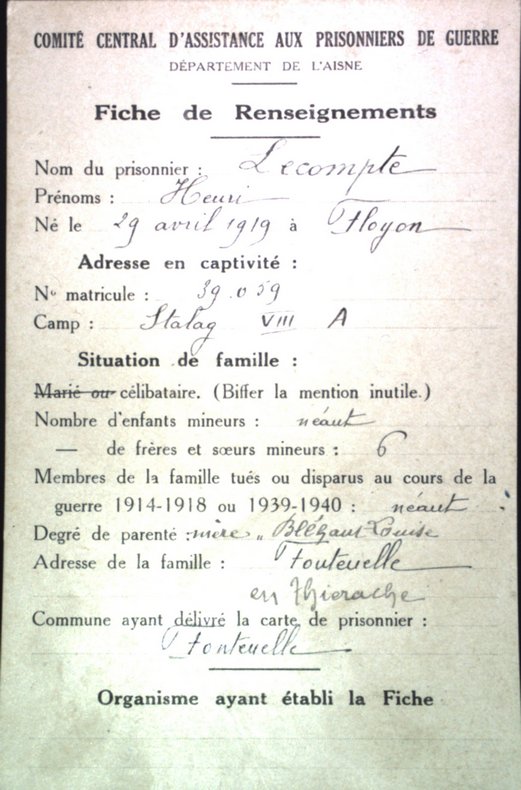 COMITÉ CENTRAL D'ASSISTANCE AUX PRISONNIERS DE GUERRE
DÉPARTEMENT DE L'AISNE
Fiche de Renseignements
Nom du prisonnier : Lecompte
Prénoms : Henri
Né le 29 avril 1919 à Floyon
Adresse en captivité :
N° matricule : 39.059
Camp : Stalag VIII A
Situation de famille :
Marié ou célibataire. (Biffer la mention inutile.)
Nombre d'enfants mineurs : néant
— de frères et sœurs mineurs : 6
Membres de la famille tués ou disparus au cours de la
guerre 1914-1918 ou 1939-1940 : néant
Degré de parenté : mère " Louise
Adresse de la famille : Fontenelle
en Thierache
Commune ayant délivré la carte de prisonnier :
Fontenelle
Organisme ayant établi la Fiche